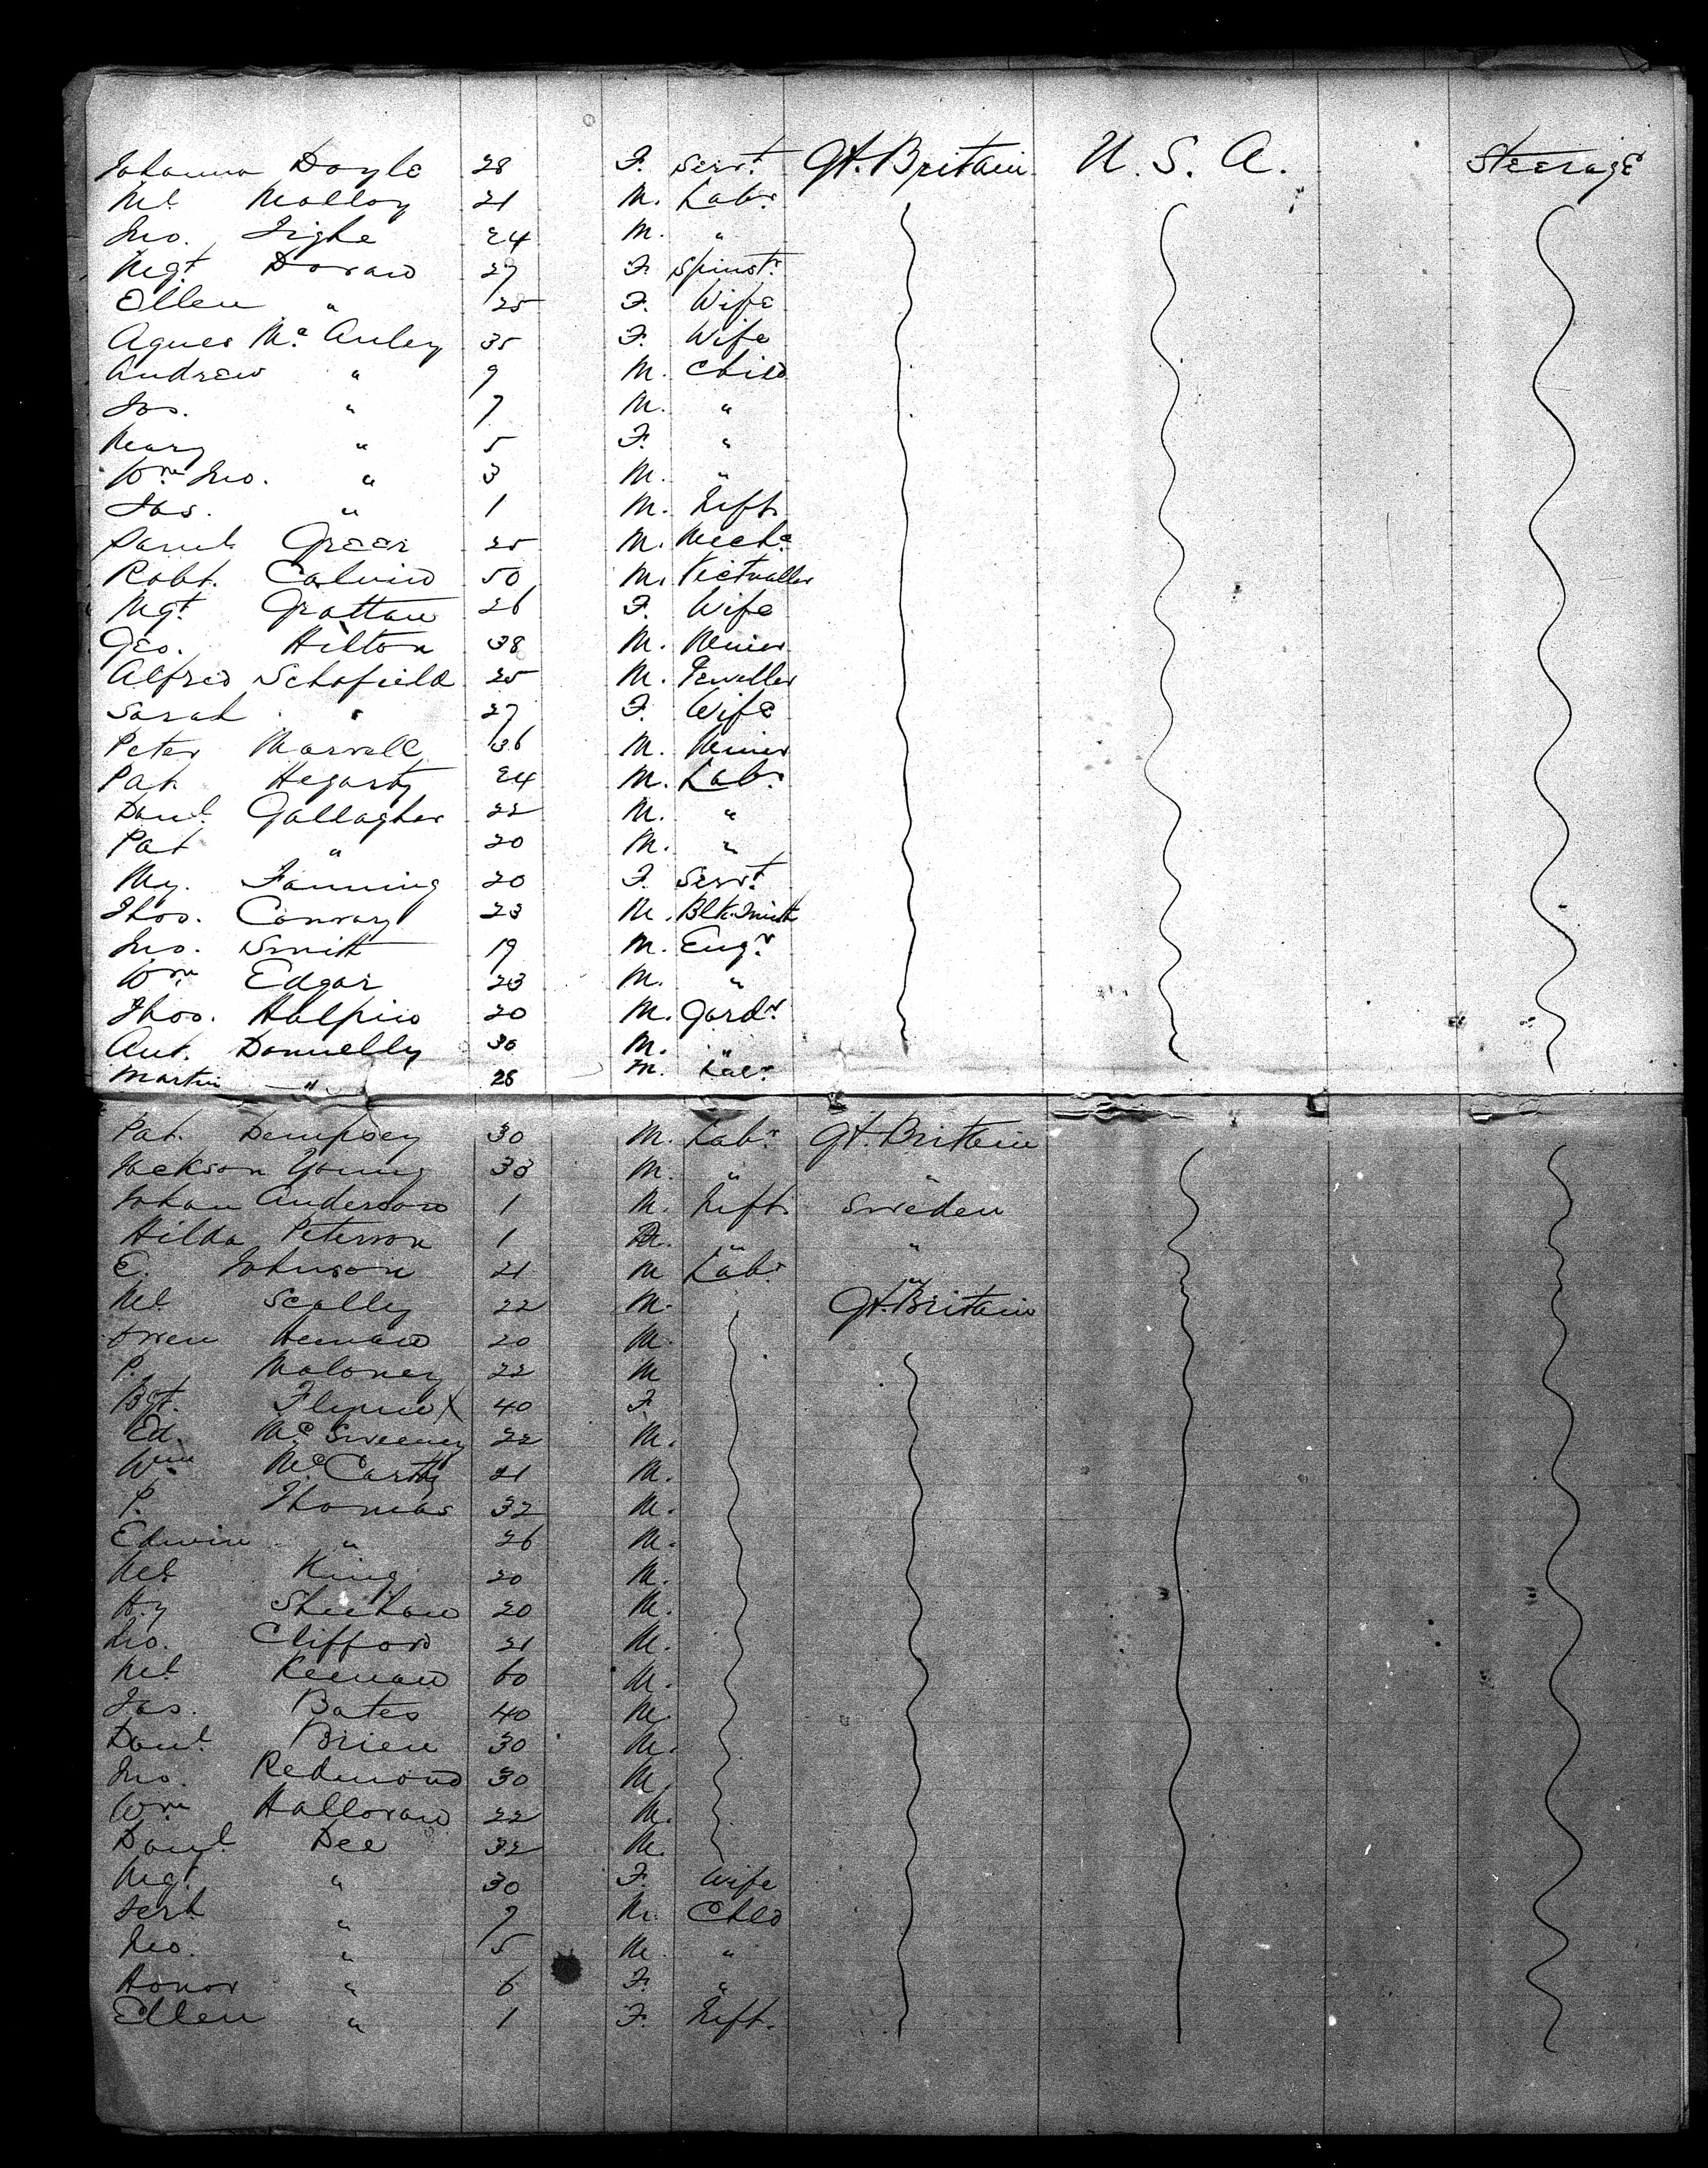 Johanna Doyle 28 F. Servt. Gt. Britain U. S. A. Steerage
Ml. Malloy 21 M. Labr.
Jno. Tighe 24 M. "
Mgt. Doran 27 F. Spinstr.
Ellen " 25 F. Wife
Agnes Mc. Auley 35 F. Wife
Andrew " 9 M. Child
Jos. " 7 M. "
Mary " 5 F. "
Wm. Jno. " 3 M. "
Jas. " 1 M. Inft.
Saml. Greer 25 M. Mechc.
Robt. Calvin 50 M. Victualler
Mgt. Grattan 26 F. Wife
Geo. Hilton 38 M. Miner
Alfred Schofield 25 M. Jeweller
Sarah " 27 F. Wife
Peter Marvell 36 M. Miner
Pat. Hegarty 24 M. Labr.
Danl. Gallagher 22 M. "
Pat " 20 M. "
My. Fanning 20 F. Servt.
Thos. Conway 23 M. Blk. Smith
Jno. Smith 19 M. Engr.
Wm. Edgar 23 M. "
Thos. Halpin 20 M. Gardr.
Ant. Donnelly 30 M. "
Martin " 28 M. Labr.
Pat. Dempsey 30 M. Labr. Gt. Britain
Jackson Young 33 M. " "
Johan Anderson 1 M. Inft. Sweden
Hilda Peterson 1 " "
E. Johnson 21 M Labr. "
Ml. Scally 22 M. Gt. Britain
Owen Henan 20 M.
P. Maloney 22 M
Bgt. Flynn X 40 F
Ed. Mc Sweeney 22 M.
Wm. Mc Carthy 21 M.
P. Thomas 32 M.
Edwin " 26 M.
Ml. King 20 M.
Hy Sheehan 20 M.
Jno. Clifford 21 M.
Ml. Keenan 60 M.
Jas. Bates 40 M.
Danl. Brien 30 M.
Jno. Redmond 30 M.
Wm Halloran 22 M.
Danl. Dee 32 M.
Mgt. " 30 F. Wife
" 7 M. Child
Jno. " 5 M. "
Honor " 6 F. "
Ellen " 1 F. Inft.